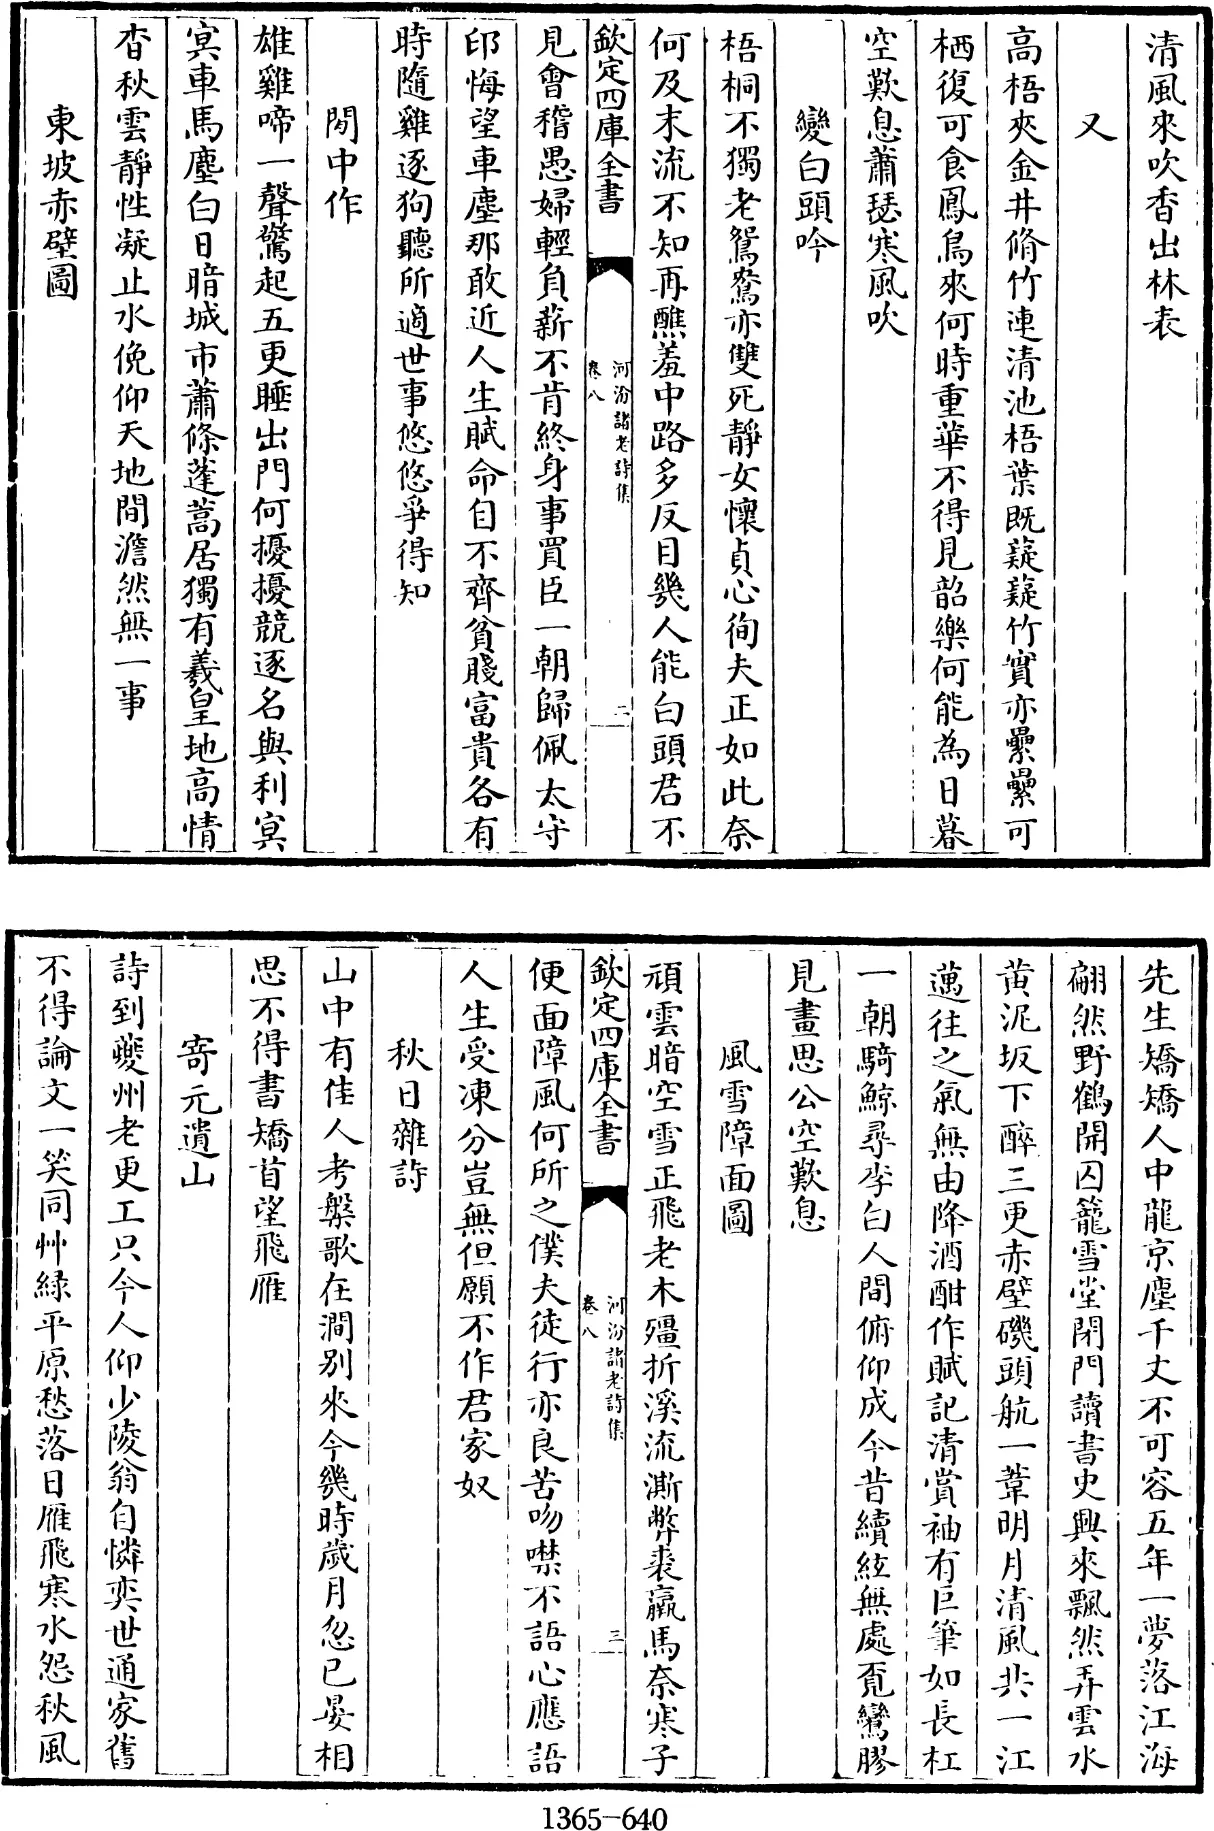 清風來吹香出林表
又
高梧夾金井脩竹連清池梧葉既薿薿竹實亦纍纍可
栖復可食鳳鳥來何時重華不得見韶樂何能為日暮
空歎息蕭瑟寒風吹
變白頭吟
梧桐不獨老鴛鴦亦雙死靜女懷貞心徇夫正如此奈
何及末流不知再醮羞中路多反目幾人能白頭君不
欽定四庫全書
河汾諸老詩集
卷八
二
見會稽愚婦輕負薪不肯終身事買臣一朝歸佩太守
印悔望車塵那敢近人生賦命自不齊貧賤富貴各有
時隨雞逐狗聽所適世事悠悠爭得知
閑中作
雄雞啼一聲驚起五更睡出門何擾擾競逐名與利冥
冥車馬塵白日暗城市蕭條蓬蒿居獨有羲皇地高情
杳秋雲靜性凝止水俛仰天地間澹然無一事
東坡赤壁圖
先生矯矯人中龍京塵千丈不可容五年一夢落江海
翩然野鶴開囚籠雪堂閉門讀書史興來飄然弄雲水
黃泥坂下醉三更赤壁磯頭航一葦明月清風共一江
邁往之氣無由降酒酣作賦記清賞袖有巨筆如長杠
一朝騎鯨尋李白人間俯仰成今昔續絃無處覓鸞膠
見畫思公空歎息
風雪障面圖
頑雲暗空雪正飛老木殭折溪流澌弊裘羸馬奈寒子
欽定四庫全書
河汾諸老詩集
卷八
三
便面障風何所之僕夫徒行亦良苦吻噤不語心應語
人生受凍分豈無但願不作君家奴
秋日雜詩
山中有佳人考槃歌在澗別來今幾時歲月忽已晏相
思不得書矯首望飛雁
寄元遺山
詩到夔州老更工只今人仰少陵翁自憐奕世通家舊
不得論文一笑同艸綠平原愁落日雁飛寒水怨秋風
1365-640